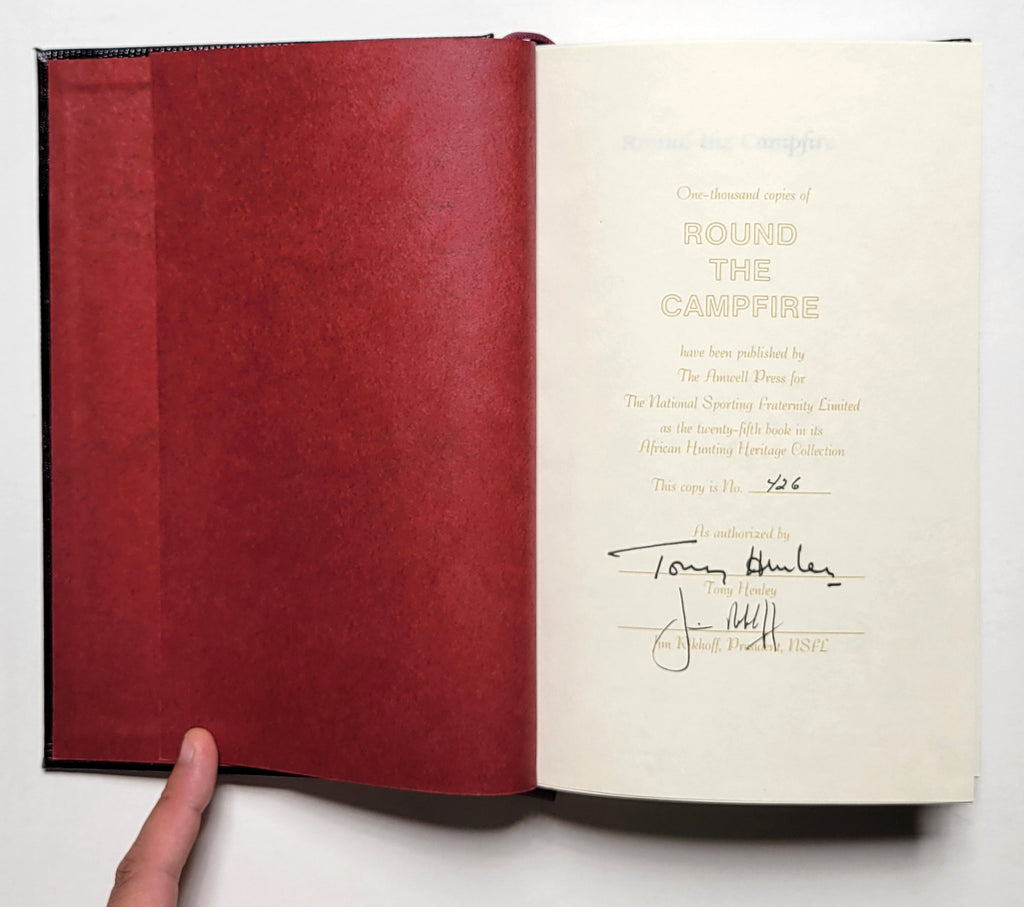 Round the Campfire
One-thousand copies of
ROUND
THE
CAMPFIRE
have been published by
The Amwell Press for
The National Sporting Fraternity Limited
as the twenty-fifth book in its
African Hunting Heritage Collection
This copy is No. 426
As authorized by
Tony Henley
Tony Henley
Jim
Jim Rikhoff, President, NSFL